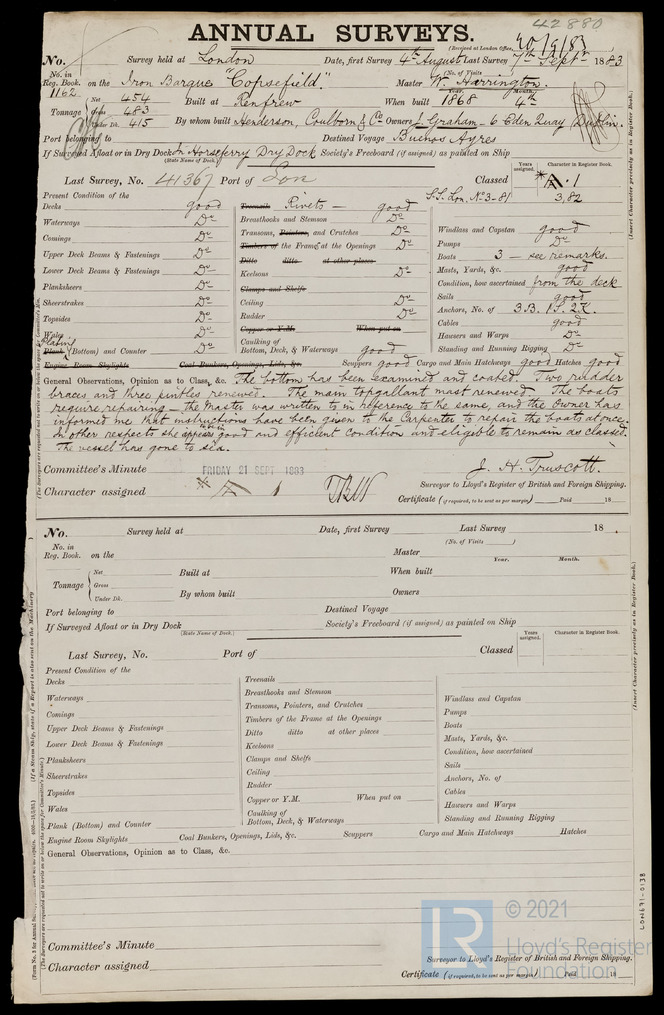 42880
ANNUAL SURVEYS.
(Received at London Office, 20/9/83)
No. Survey held at London Date, first Survey 4th August Last Survey 7th Sept 1883
(No. of Visits)
No. in Reg. Book. 1162. on the Iron Barque "Copsefield." Master W. Harrington.
Year. Month.
Tonnage Net 454 Gross 483 Under Dk. 415
Built at Renfrew When built 1868 4th
By whom built Henderson, Coulborn & Co Owners J. Graham - 6 Eden Quay Dublin.
Port belonging to Destined Voyage Buenos Ayres
If Surveyed Afloat or in Dry Dock Horseferry Dry Dock Society's Freeboard (if assigned) as painted on Ship
(State Name of Dock.)
Years assigned. Character in Register Book.
Last Survey, No. 41367 Port of Lon Classed A.1
S.S. Lon. No 3-81 3,82
Present Condition of the
Decks good
Waterways Do
Comings Do
Upper Deck Beams & Fastenings Do
Lower Deck Beams & Fastenings Do
Planksheers Do
Sheerstrakes Do
Topsides Do
Wales Do
Plating
Plank (Bottom) and Counter Do
Treenails Rivets - good
Breasthooks and Stemson Do
Transoms, Pointers, and Crutches Do
Timbers of the Frames at the Openings Do
Ditto ditto at other places
Keelsons Do
Clamps and Shelfs
Ceiling Do
Rudder Do
Copper or Y.M. When put on
Caulking of Bottom, Deck, & Waterways good
Windlass and Capstan good
Pumps Do
Boats 3 - see remarks.
Masts, Yards, &c. good
Condition, how ascertained from the deck
Sails good
Anchors, No. of 3 B. 1 S. 2 K.
Cables good
Hawsers and Warps Do
Standing and Running Rigging Do
Engine Room Skylights Coal Bunkers, Openings, Lids, &c. Scuppers good Cargo and Main Hatchways good Hatches good
General Observations, Opinion as to Class, &c. The bottom has been examined and coated. Two rudder
braces and three pintles renewed. The main topgallant mast renewed. The boats
require repairing - the Master was written to in reference to the same, and the Owner has
informed me that instructions have been given to the Carpenter to repair the boats at once.
In other respects she appears good and efficient condition and eligible to remain as classed.
The vessel has gone to sea.
Committee's Minute FRIDAY 21 SEPT 1883
J. H. Truscott.
Character assigned A 1
Surveyor to Lloyd's Register of British and Foreign Shipping.
Certificate (if required, to be sent as per margin) Paid 18
No. Survey held at Date, first Survey Last Survey 18 .
(No. of Visits )
No. in Reg. Book. on the Master
Year. Month.
Tonnage Net Gross Under Dk.
Built at When built
By whom built Owners
Port belonging to Destined Voyage
If Surveyed Afloat or in Dry Dock Society's Freeboard (if assigned) as painted on Ship
(State Name of Dock.)
Years assigned. Character in Register Book.
Last Survey, No. Port of Classed
Present Condition of the
Decks
Waterways
Comings
Upper Deck Beams & Fastenings
Lower Deck Beams & Fastenings
Planksheers
Sheerstrakes
Topsides
Wales
Plank (Bottom) and Counter
Treenails
Breasthooks and Stemson
Transoms, Pointers, and Crutches
Timbers of the Frame at the Openings
Ditto ditto at other places
Keelsons
Clamps and Shelfs
Ceiling
Rudder
Copper or Y.M. When put on
Caulking of Bottom, Deck, & Waterways
Windlass and Capstan
Pumps
Boats
Masts, Yards, &c.
Condition, how ascertained
Sails
Anchors, No. of
Cables
Hawsers and Warps
Standing and Running Rigging
Engine Room Skylights Coal Bunkers, Openings, Lids, &c. Scuppers Cargo and Main Hatchways Hatches
General Observations, Opinion as to Class, &c.
Committee's Minute
Character assigned
Surveyor to Lloyd's Register of British and Foreign Shipping.
Certificate (if required, to be sent as per margin) Paid 18
(Insert Character precisely as in Register Book.)
(Insert Character precisely as in Register Book.)
(The Surveyors are requested not to write on or below the space for Committee's Minute.)
(If a Steam Ship, state if a Report is also sent on the Machinery
LON691-0138
© 2021
Lloyd's Register
Foundation